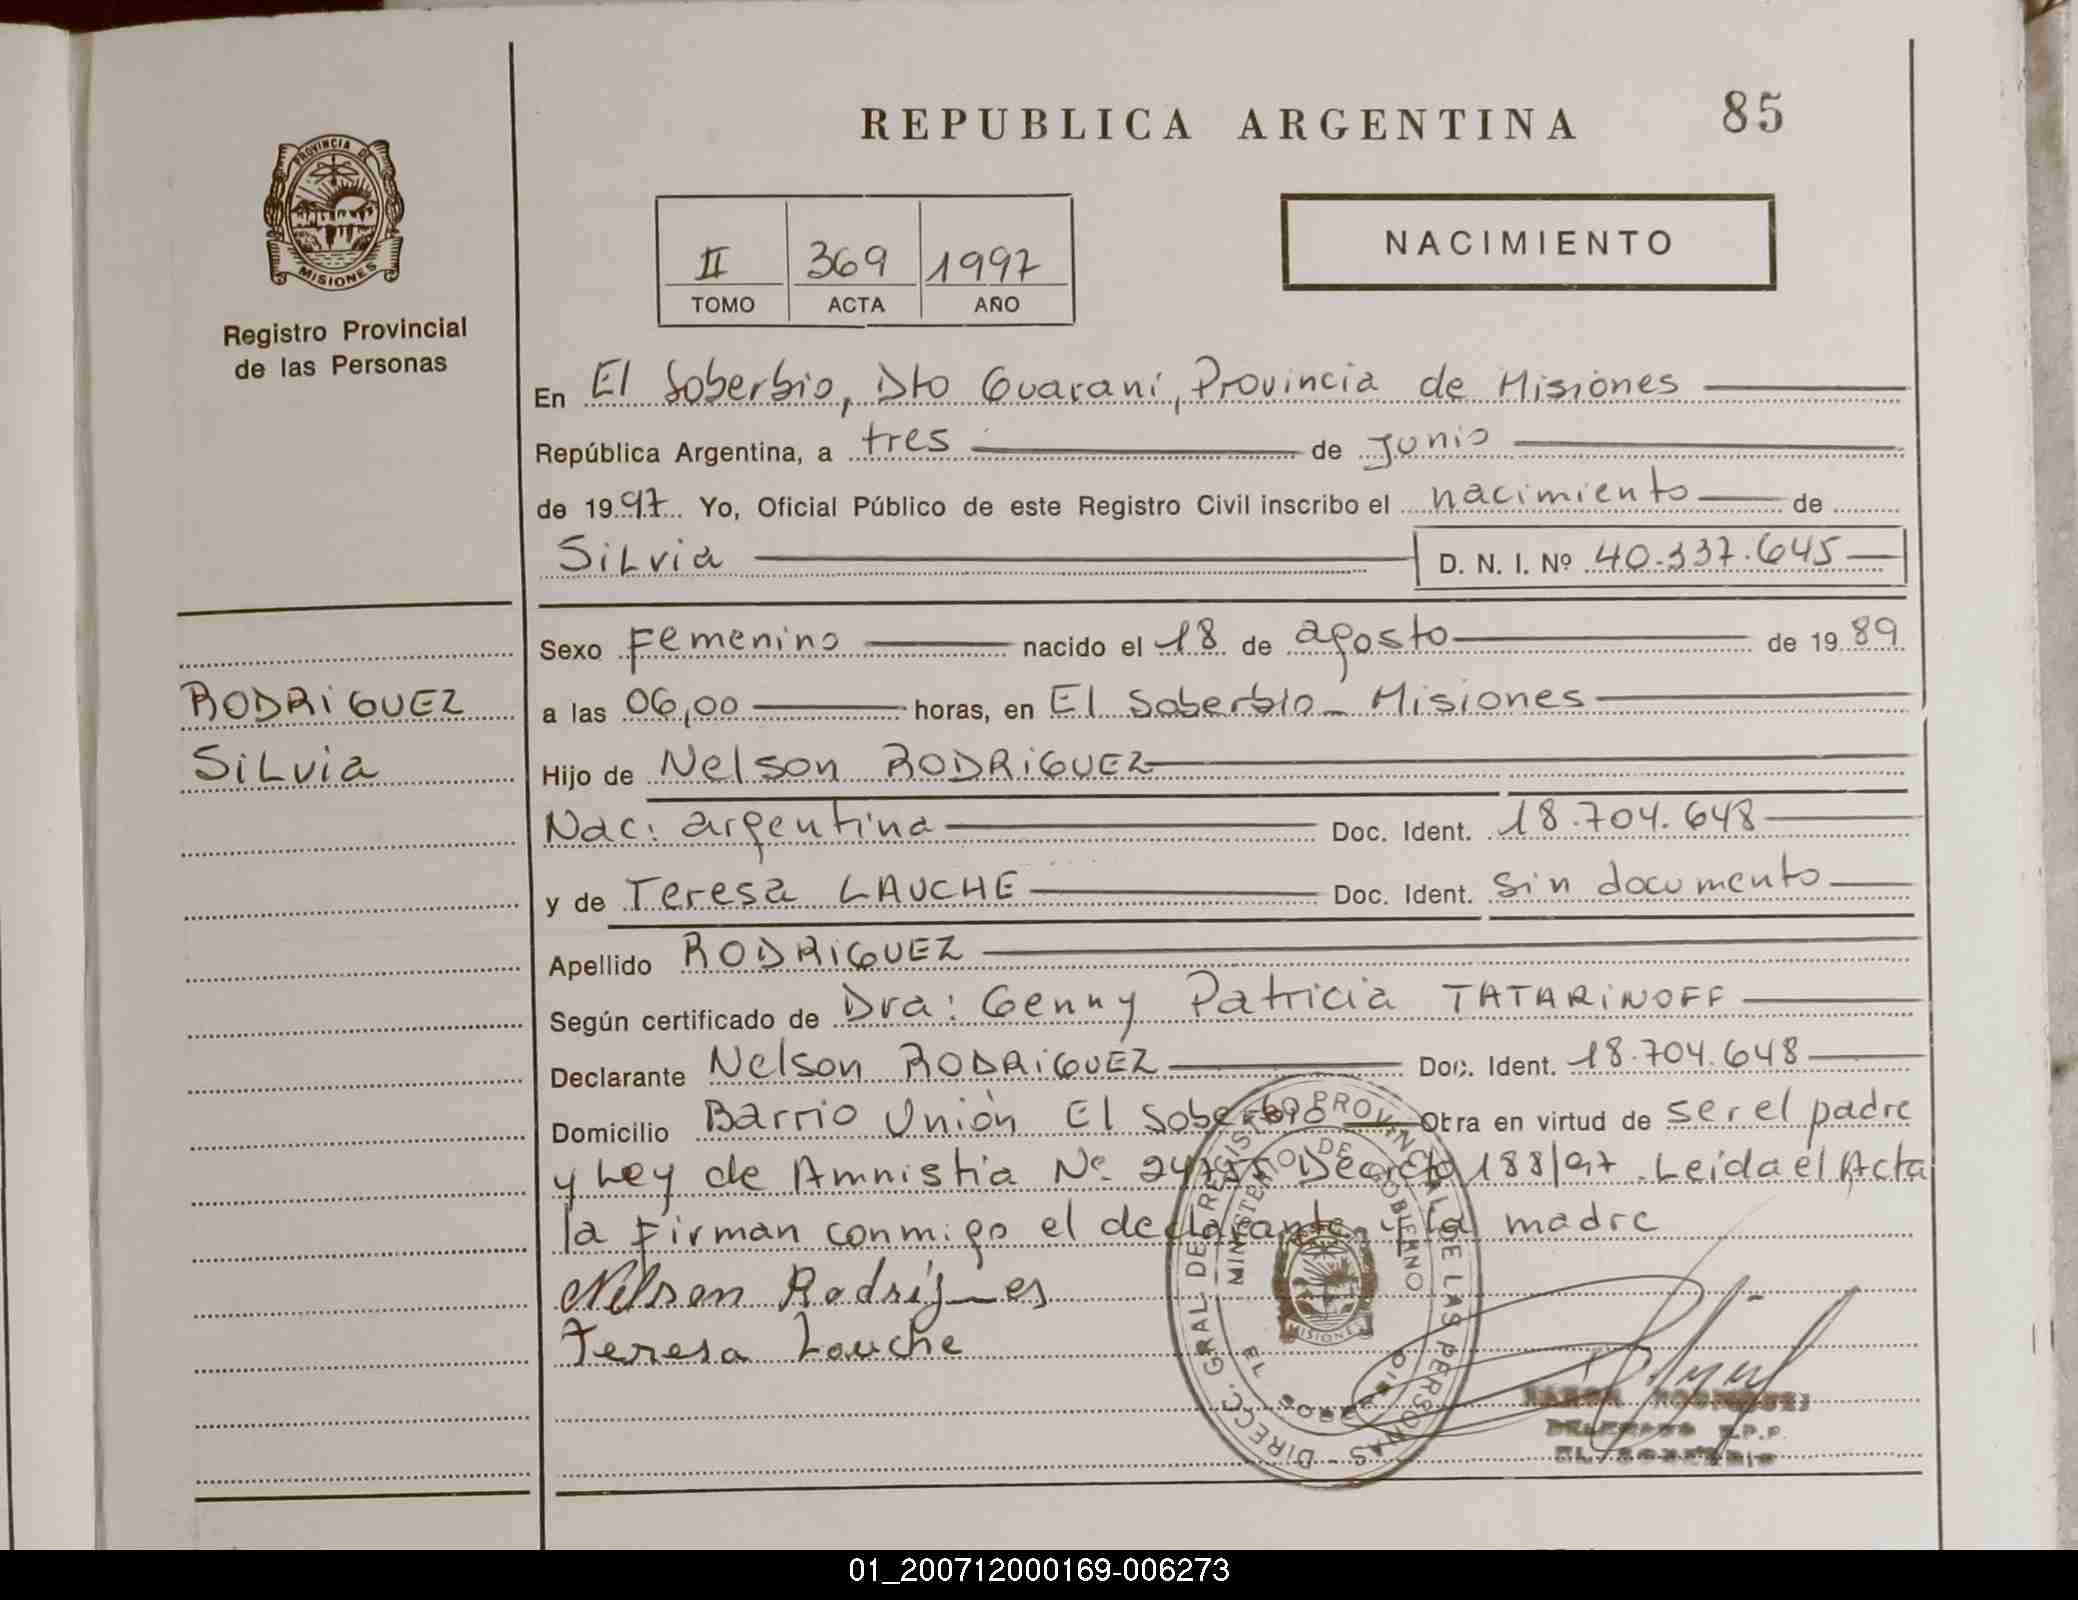 REPUBLICA ARGENTINA 85
PROVINCIA DE
MISIONES
Registro Provincial
de las Personas
II 369 1997
TOMO ACTA AÑO
NACIMIENTO
En El Soberbio, Dto Guaraní, Provincia de Misiones
República Argentina, a tres de junio
de 1997. Yo, Oficial Público de este Registro Civil inscribo el nacimiento de
SiLvia D. N. I. Nº 40.337.645
Sexo Femenino nacido el 18 de agosto de 1989
RODRiGUEZ
SiLvia
a las 06,00 horas, en El Soberbio - Misiones
Hijo de Nelson RODRiGUEZ
Nac: argentina Doc. Ident. 18.704.648
y de Teresa LAUCHE Doc. Ident. sin documento
Apellido RODRiGUEZ
Según certificado de Dra: Genny Patricia TATARiNOFF
Declarante Nelson RODRiGUEZ Doc. Ident. 18.704.648
Domicilio Barrio Unión El Soberbio Obra en virtud de ser el padre
y Ley de Amnistia Nº Decreto 188/97. Leida el Acta
la firman conmigo el declarante y la madre
Nelson Rodrígues
Teresa Lauche
DIRECC. GRAL DE REGISTRO PROVINCIAL DE LAS PERSONAS
MINISTERIO DE GOBIERNO
EL SOBERBIO
MISIONES
RODRIGUEZ
DELEGADO R.P.P.
EL SOBERBIO
01_200712000169-006273